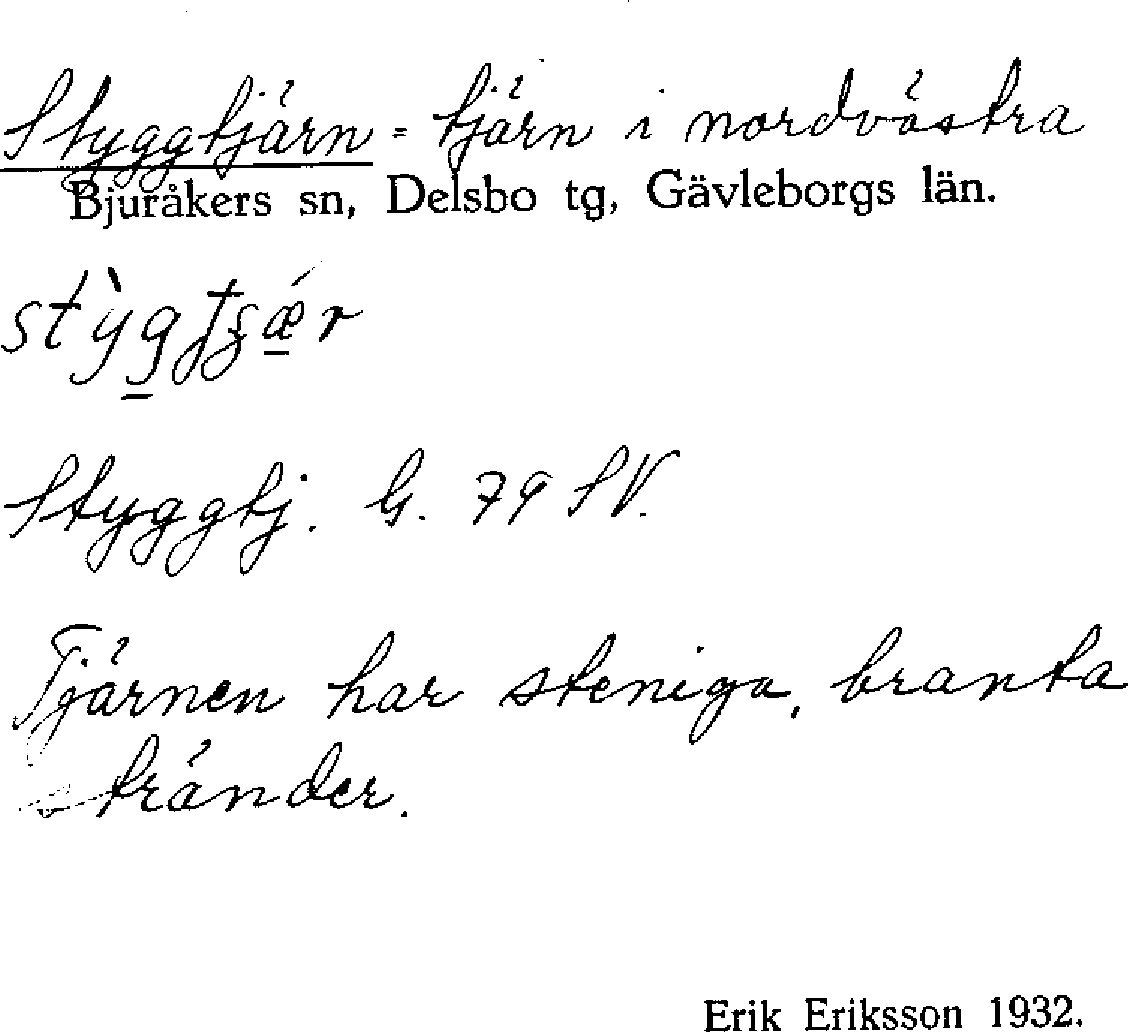 Styggtjärn = tjärn i nordvästra
Bjuråkers sn, Delsbo tg, Gävleborgs län.
Styggtj. G. 79 SV.
Tjärnen har steniga, branta
stränder.
Erik Eriksson 1932.